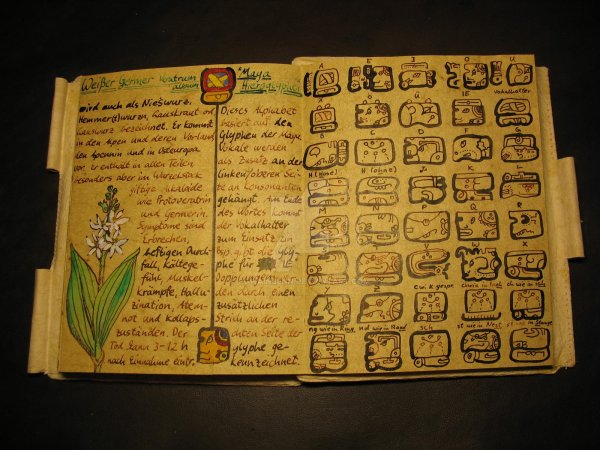 Weißer Germer Veratrum album
wird auch als Nieswurz,
Hemmer(t)wurzn, Lauskraut od
Lauswurz bezeichnet. Er kommt
in den Alpen und deren Vorland,
den Apennin und in Osteuropa
vor. Er enthält in allen Teilen
besonders aber im Wurzelstock
giftige Alkaloide
wie Protoveratrin
und Germerin.
Symptome sind
Erbrechen,
heftigen Durch-
fall, Kältege-
fühl, Muskel-
krämpfe, Hallu-
zination, Atem-
not und Kollaps-
zuständen. Der
Tod kann 3-12 h
nach Einnahme eintr.
Maya
Hieroglyphen
Dieses Alphabet
basiert auf den
Glyphen der Maya.
Vokale werden
als Zusatz an der
linken/oberen Sei-
te an Konsonanten
gehängt. Am Ende
des Wortes kommt
der Vokalhalter
zum Einsatz. Ein
bsp. gibt die Gly-
phe für IE.
Dopplungen wer-
den durch einen
zusätzlichen
Strich an der re-
chten Seite der
Glyphe ge-
kennzeichnet.
A E I O U
Ä Ö Ü IE Vokalhalter
B C D F G
H (Hose) H (ohne) J K L
M N P Q R
S T V W X
Y Z C w. K gespr. ch wie in ich ch wie in Loch
ng wie in Ring nd wie in Hand Sch st wie in Nest st wie in Stange